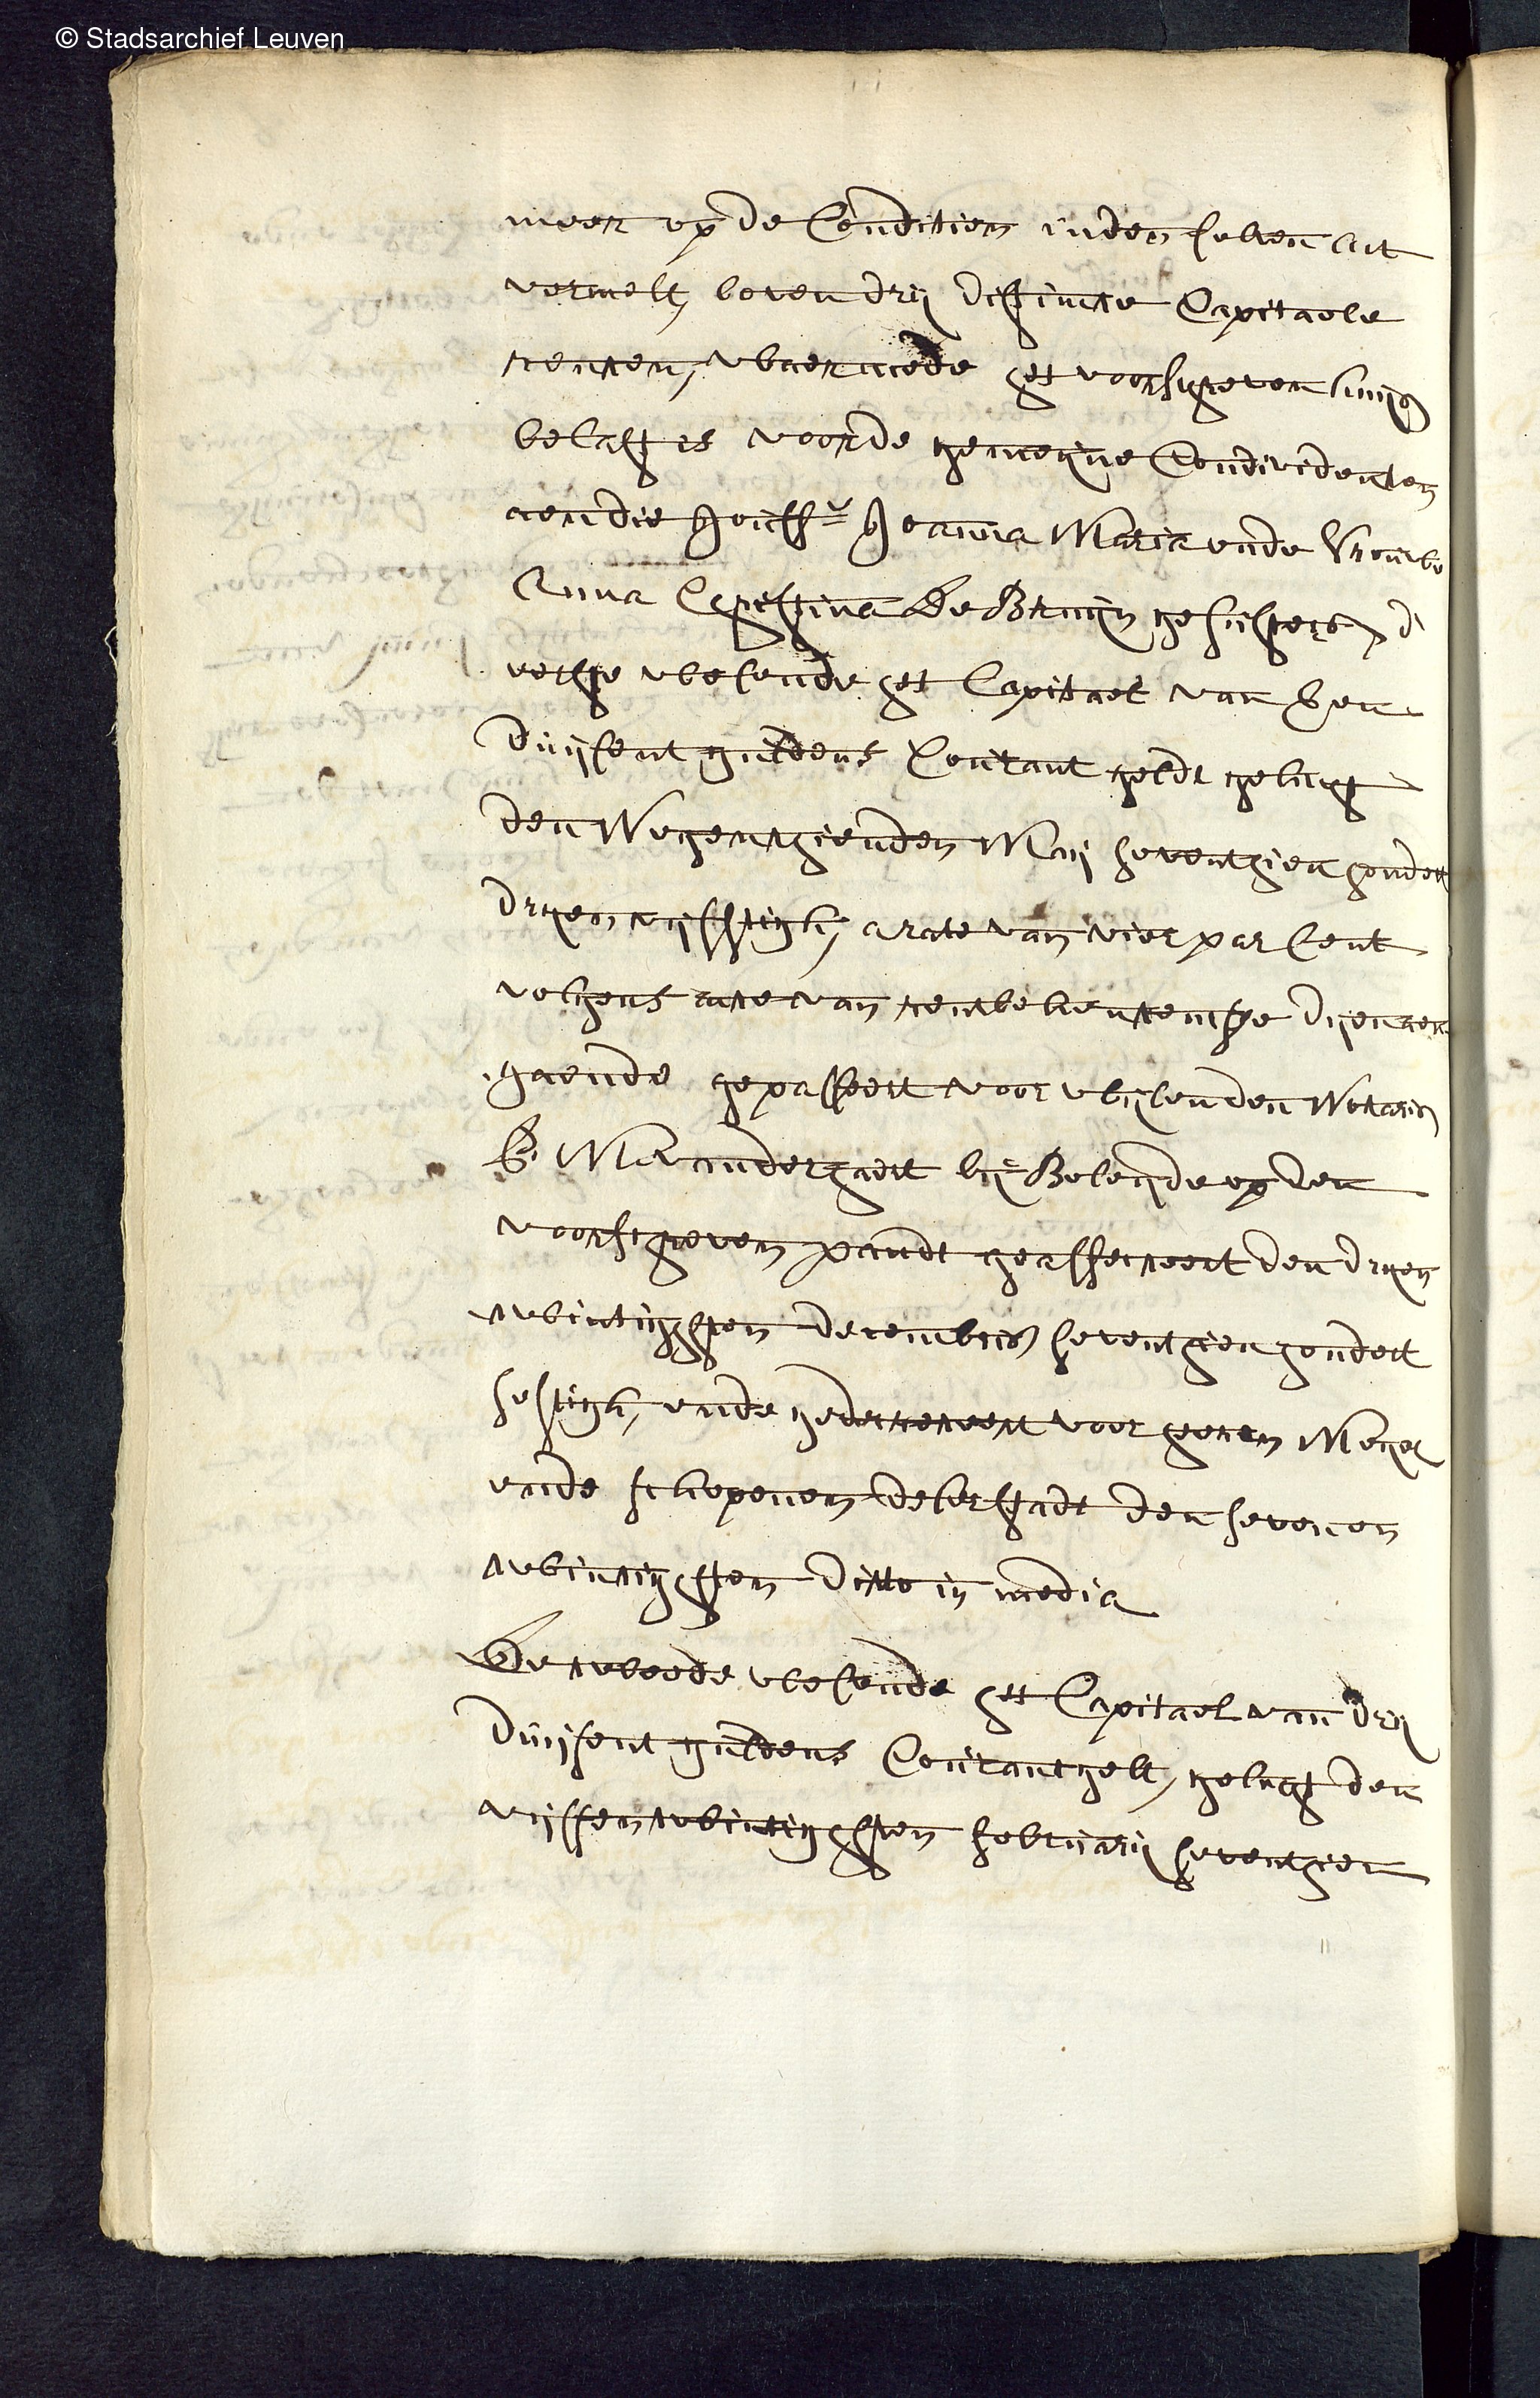 © Stadsarchief Leuven
meer op de Conditien inden selven act
vermelt, boven drij distincte Capitaele
renten, waermede het voorschreven huijs
belast is voor de gemeijne Condividenten
aen die Jouffe Joanna Maria ende Vrouwe
Anna Christina De Bruijn gesusters, d'
eerste wesende het Capitael van Een
duijsent guldens Courant geldt gelicht
den Negenthienden Maij seventhien hondert
drijenvijfftigh, a rate van vier par Cent
volghens acte van rentbekentenisse dijenaen
gaende gepasseert voor wijlen den Notaris
G: M: Vanderhaert bij Beleyde op den
voorschreven pandt geaffecteert den drijen
twintighsten decembris seventhien hondert
sestigh, ende gedecreteert voor heeren Meijer
ende schepenen deser stadt den sevenen
twintighsten ditto in media
De tweede wesende het Capitael van drij
duijsent guldens Courant gelt, gelicht den
vijffentwintighsten februarij seventhien